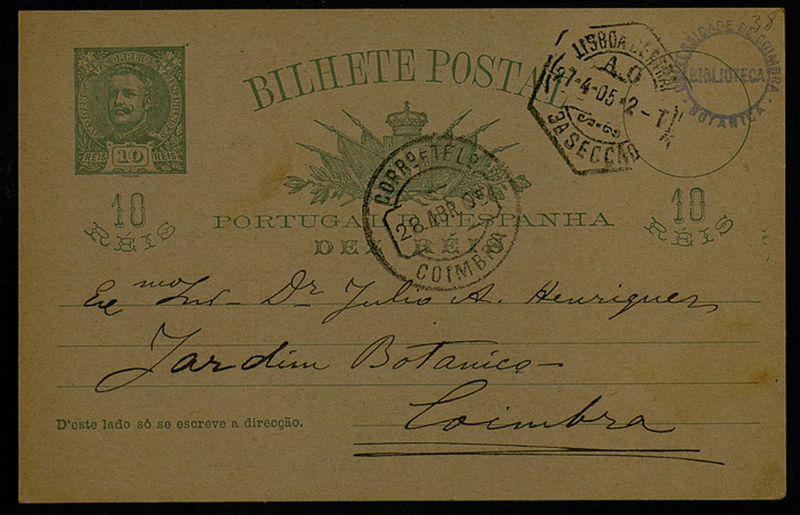 38
CORREIOS
PORTUGAL
REIS 10 REIS
BILHETE POSTAL
LISBOA CENTRAL
27-4-05·2-T
3A SECÇÃO
UNIVERSIDADE DE COIMBRA
BIBLIOTECA
BOTANICA
10 REIS
CORRO E TELO
28 ABR 05
COIMBRA
PORTUGAL E HESPANHA
DEZ RÉIS
10 REIS
Exmo Snr Dr Julio A. Henriques
Jardim Botanico
Coimbra
D'este lado só se escreve a direcção.